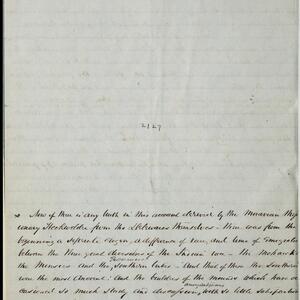 2127
Now if there is any truth in this account derived by the Moravian Mis
sionary Heckwelder from the Delawares themselves - there was from the
beginning a separate origin, a difference of race, and time of immigration
between the three great divisions of the Indian race - the Mohawks
the Mensees and the Southern tribes - And that of these the Southern
were the most ancient: And the builders of the mounds which have oc
casioned so much study and discussion, with so little satisfaction